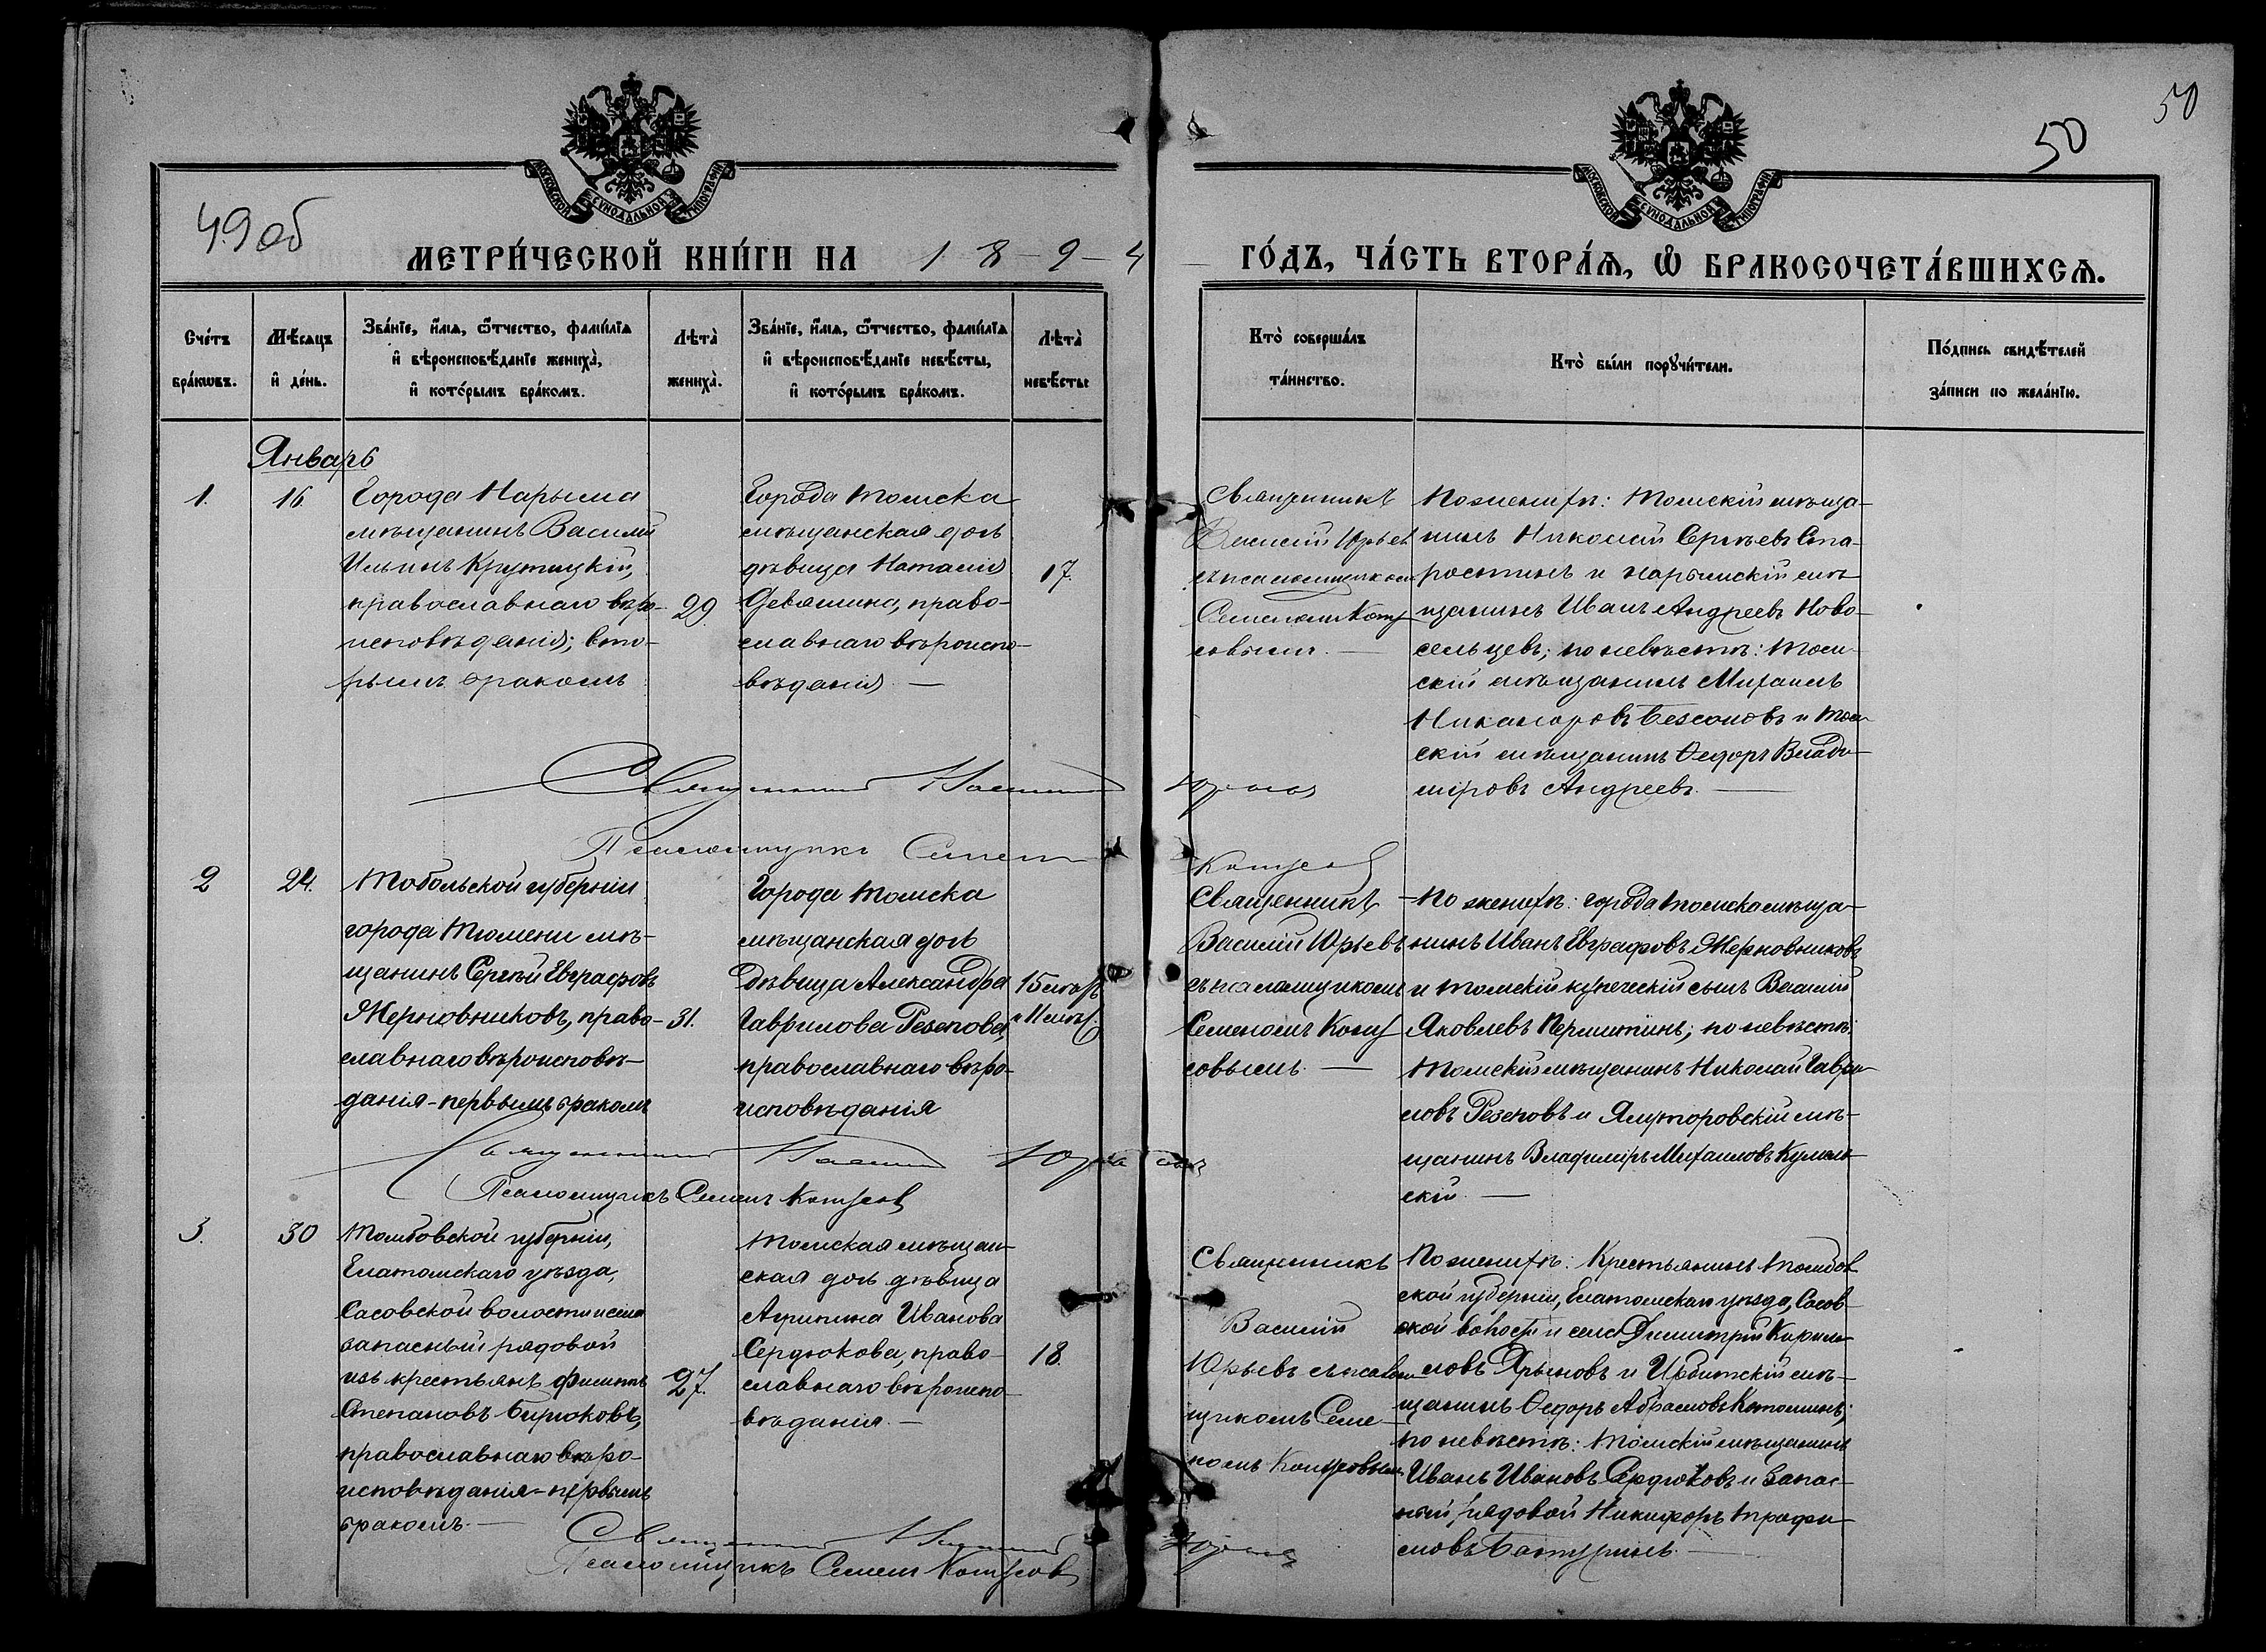 49 об
50
50
МОСКОВСКОЙ СѴНОДАЛЬНОЙ ТИПОГРАФІИ
МОСКОВСКОЙ СѴНОДАЛЬНОЙ ТИПОГРАФІИ
МЕТРИ́ЧЕСКОЙ КНИ́ГИ НА 1894
ГО́ДЪ, ЧА́СТЬ ВТОРА́Ѧ, Ѡ҆ БРАКОСОЧЕТА́ВШИХСѦ.
Сче́тъ
бра́кѡвъ.
Мѣ́сѧцъ
и҆ де́нь.
Зва́нїе, и҆́мѧ, ѻ҆́тчество, фами́лїѧ
и҆ вѣроисповѣ́данїе жениха̀,
и҆ кото́рымъ бра́комъ.
Лѣ́та̀
жениха̀.
Зва́нїе, и҆́мѧ, ѻ҆́тчество, фами́лїѧ
и҆ вѣроисповѣ́данїе невѣ́сты,
и҆ кото́рымъ бра́комъ.
Лѣ́та̀
невѣ́сты
Кто̀ соверша́лъ
та́инство.
Кто̀ бы́ли порꙋчи́тели.
По́дпись свидѣ́телей
за́писи по жела́нїю.
Январь
1.
16.
Города Нарыма
мѣщанинъ Василій
Ильинъ Крутицкій,
православнаго вѣро-
исповѣданія; вто-
рымъ бракомъ
29.
Города Томска
мѣщанская дочь
дѣвица Наталія
Девяшина, право-
славнаго вѣроиспо-
вѣданія —
17.
Священникъ
Василій Юрьевъ
съ псаломщикомъ
Семеномъ Коту
совымъ. —
По женихѣ: Томскій мѣща-
нинъ Николай Сергѣевъ Ста-
ростинъ и нарымскій мѣ-
щанинъ Иванъ Андреевъ Ново-
сельцевъ; по невѣстѣ: Том-
скій мѣщанинъ Михаилъ
Никаноровъ Безсоновъ и Том-
скій мѣщанинъ Ѳедоръ Влади-
міровъ Андреевъ. —
Священникъ Василій Юрьевъ
Псаломщикъ Семенъ
2
24.
Тобольской губерніи
города Тюмени мѣ-
щанинъ Сергѣй Евграфовъ
Жерновниковъ, право-
славнаго вѣроисповѣ-
данія - первымъ бракомъ
31.
Города Томска
мѣщанская дочь
дѣвица Александра
Гаврилова Резепова,
православнаго вѣро-
исповѣданія
15 лѣтъ
и 11 мѣс.
Священникъ
Василій Юрьевъ
съ псаломщикомъ
Семеномъ Коту
совымъ —
По женихѣ: города Томска мѣща-
нинъ Иванъ Евграфовъ Жерновниковъ
и томскій купеческій сынъ Василій
Яковлевъ Пермитинъ; по невѣстѣ:
Томскій мѣщанинъ Николай Гаври-
ловъ Резеповъ и Ялуторовскій мѣ-
щанинъ Владиміръ Михаиловъ
скій —
Священникъ Василій Юрьевъ
Псаломщикъ Семенъ
3.
30
Тамбовской губерніи,
Елатомскаго уѣзда,
Сасовской волости и села
запасный рядовой
изъ крестьянъ Филиппъ
Степановъ Бирюковъ,
православнаго вѣро-
исповѣданія - первымъ
бракомъ. —
27.
Томская мѣщан-
ская дочь дѣвица
Агрипина Иванова
Сердюкова, право-
славнаго вѣроиспо-
вѣданія. —
18.
Священникъ
Василій
Юрьевъ съ псалом
щикомъ Семе-
номъ
По женихѣ: Крестьянинъ Тамбов
ской губерніи, Елатомскаго уѣзда, Сасов-
ской волости и села Димитрій Кирил-
ловъ и Ирбитскій мѣ-
щанинъ Ѳедоръ Абрамовъ
по невѣстѣ: Томскій мѣщанинъ
Иванъ Ивановъ Сердюковъ и запас-
ный рядовой Никифоръ Трофи-
мовъ Батуринъ. —
Священникъ Василій Юрьевъ
Псаломщикъ Семенъ